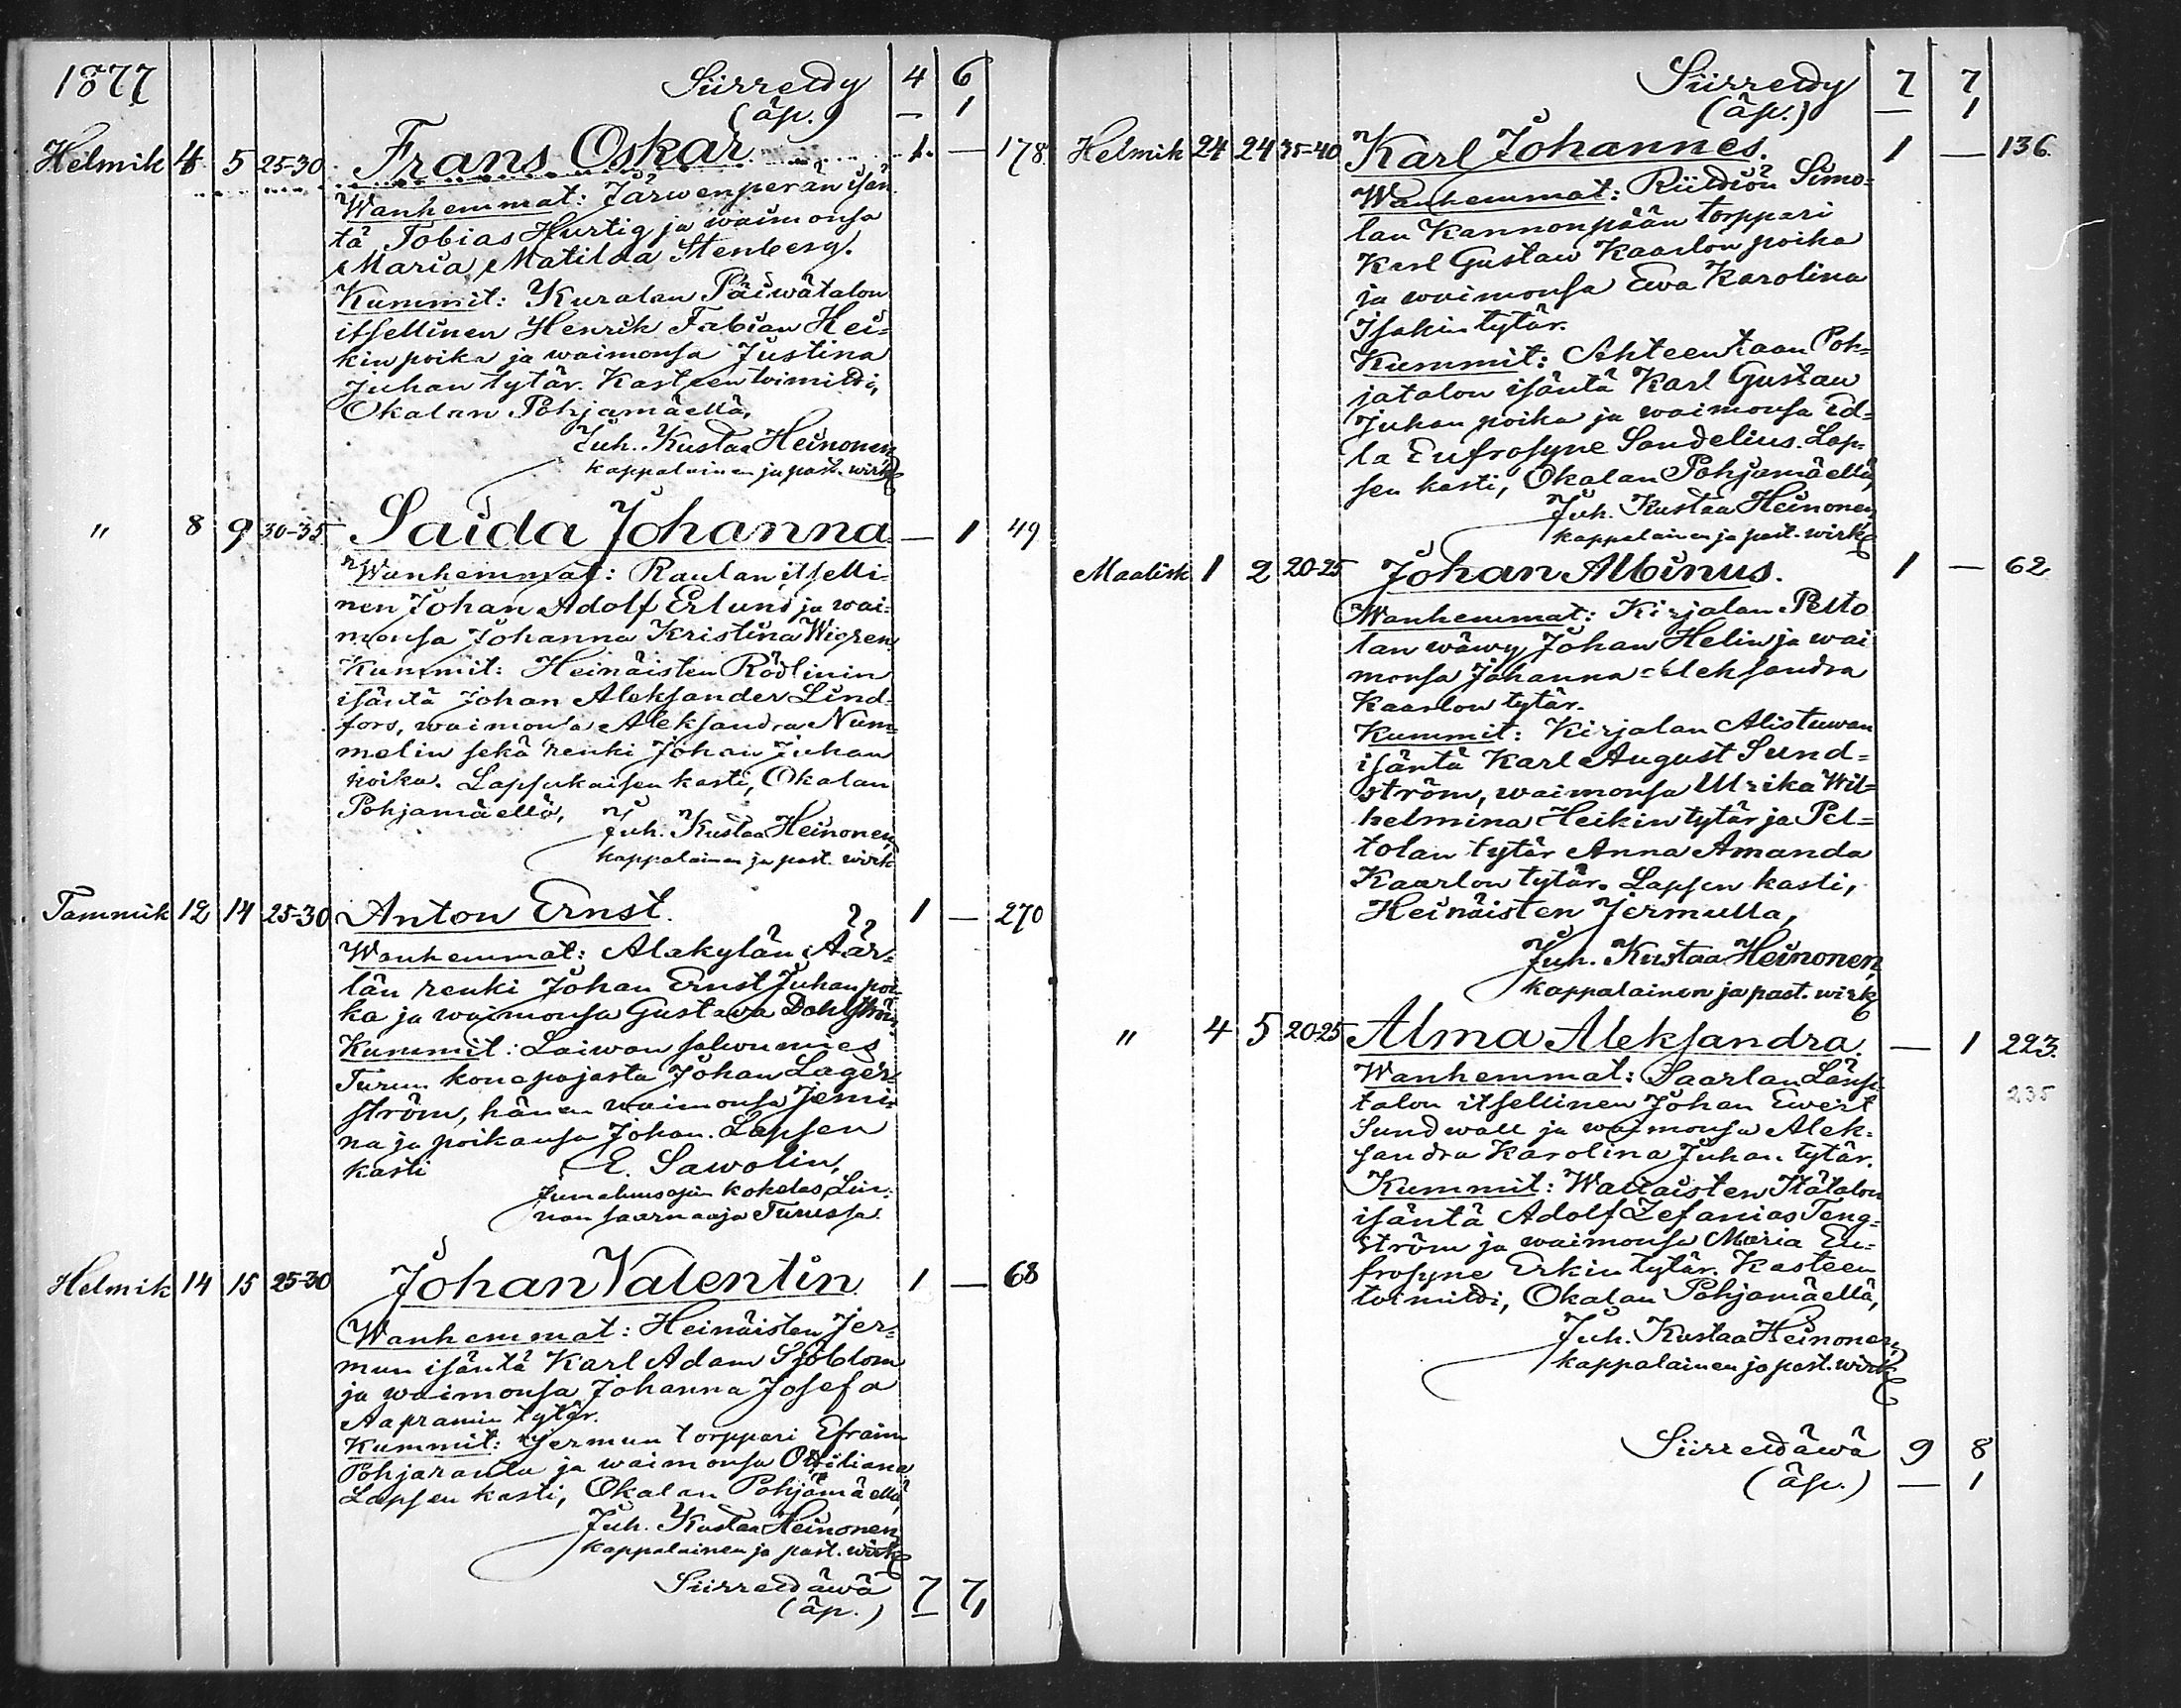 1877 Siirretty 4 6
(äp.) — 1
Helmik 4 5 25-30 Frans Oskar 1 — 178
Wanhemmat: Järwenperän isän
tä Tobias Hurtig ja waimonsa
Maria Matilda Stenberg.
Kummit: Kuralan Päiwätalon
itsellinen Henrik Fabian Hei-
kin poika ja waimonsa Justina
Juhan tytär. Kasteen toimitti,
Okalan Pohjamäellä,
Juh. Kustaa Heinonen,
kappalainen ja past. wirk
" 8 9 30-35 Saida Johanna — 1 49
Wanhemmat: Raulan itselli-
nen Johan Adolf Erlund ja wai-
monsa Johanna Kristina Wigren
Kummit: Heinäisten Rödlinin
isäntä Johan Aleksander Lind-
fors, waimonsa Aleksandra Num-
melin sekä renki Johan Juhan
poika. Lapsukaisen kasti, Okalan
Pohjamäellä,
Juh. Kustaa Heinonen,
kappalainen ja past. wirk
Tammik 12 14 25-30 Anton Ernst. 1 — 270
Wanhemmat: Alakylän Äär-
län renki Johan Ernst Juhan poi-
ka ja waimonsa Gustawa Dahlström
Kummit: Laiwan salwumies
Turun konepajasta Johan Lager-
ström, hänen waimonsa Jemi-
na ja poikansa Johan. Lapsen
kasti E. Sawolin,
Jumaluusopin kokelas, Lin-
nan saarnaaja Turussa.
Helmik 14 15 25-30 Johan Valentin 1 — 68
Wanhemmat: Heinäisten Jer-
mun isäntä Karl Adam Sjöblom
ja waimonsa Johanna Josefa
Aapramin tytär.
Kummit: Jermun torppari Efraim
Pohjaranta ja waimonsa Ottiliana
Lapsen kasti, Okalan Pohjamäellä,
Juh. Kustaa Heinonen,
kappalainen ja past. wirk
Siirrettäwä 7 7
(äp.) — 1
Siirretty 7 7
(äp.) — 1
Helmik 24 24 35-40 Karl Johannes. 1 — 136
Wanhemmat: Riittiön Simo-
lan Kannonpään torppari
Karl Gustaw Kaarlon poika
ja waimonsa Ewa Karolina
Isakin tytär.
Kummit: Ahteentaan Poh-
jatalon isäntä Karl Gustaw
Juhan poika ja waimonsa Ed-
la Eufrosyne Sandelius. Lap-
sen kasti, Okalan Pohjamäellä,
Juh. Kustaa Heinonen,
kappalainen ja past. wirk
Maalisk 1 2 20-25 Johan Albinus. 1 — 62
Wanhemmat: Kirjalan Pelto
lan wäwy Johan Helin ja wai
monsa Johanna Aleksandra
Kaarlon tytär.
Kummit: Kirjalan Alistuwan
isäntä Karl August Sund-
ström, waimonsa Ulrika Wil-
helmina Heikin tytär ja Pel-
tolan tytär Anna Amanda
Kaarlon tytär. Lapsen kasti,
Heinäisten Jermulla,
Juh. Kustaa Heinonen,
kappalainen ja past. wirk
" 4 5 20-25 Alma Aleksandra. — 1 223.
Wanhemmat: Saarlan Länsi- 235
talon itsellinen Johan Ewert
Sundwall ja waimonsa Alek-
sandra Karolina Juhan tytär.
Kummit: Wallaisten Itätalon
isäntä Adolf Zefanias Teng-
ström ja waimonsa Maria Eu-
frosyne Erkin tytär. Kasteen
toimitti, Okalan Pohjamäellä,
Juh. Kustaa Heinonen,
kappalainen ja past. wirk
Siirrettäwä 9 8
(äp.) — 1